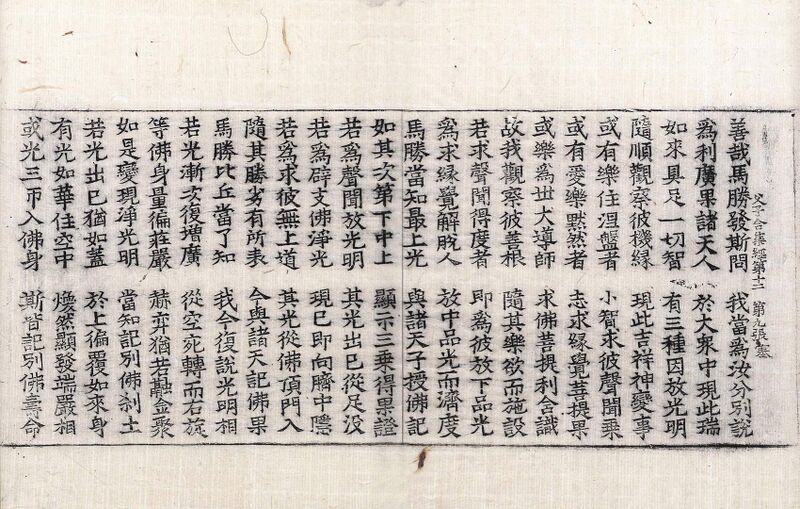 父子合集經第十二 第九張
善哉馬勝發斯問 我當爲汝分別說
爲利廣果諸天人 於大衆中現此瑞
如來具足一切智 有三種因放光明
隨順觀察彼機緣 現此吉祥神變事
或有樂住涅盤者 小智求彼聲聞乘
或有愛樂默然者 志求緣覺菩提果
或樂爲世大導師 求佛菩提利含識
故我觀察彼善根 隨其樂欲而施設
若求聲聞得度者 即爲彼放下品光
爲求緣覺解脫人 放中品光而濟度
馬勝當知最上光 與諸天子授佛記
如其次第下中上 顯示三乘得果證
若爲聲聞放光明 其光出已從足没
若爲辟支佛淨光 現已即向臍中隱
若爲求彼無上道 其光從佛頂門入
隨其勝劣有所表 今與諸天記佛果
馬勝比丘當了知 我今復說光明相
若光漸次復增廣 從空宛轉而右旋
等佛身量徧莊嚴 赫弈猶若融金聚
如是變現淨光明 當知記別佛刹土
若光出已猶如蓋 於上徧覆如來身
有光如華住空中 煥然顯發端嚴相
或光三帀入佛身 斯皆記別佛壽命